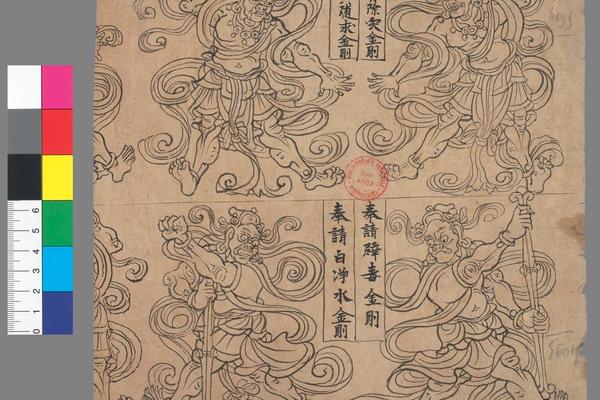 除灾金剛
隨求金剛
奉請辟毒金剛
奉請白淨水金剛
6
5
4
3
2
1
0